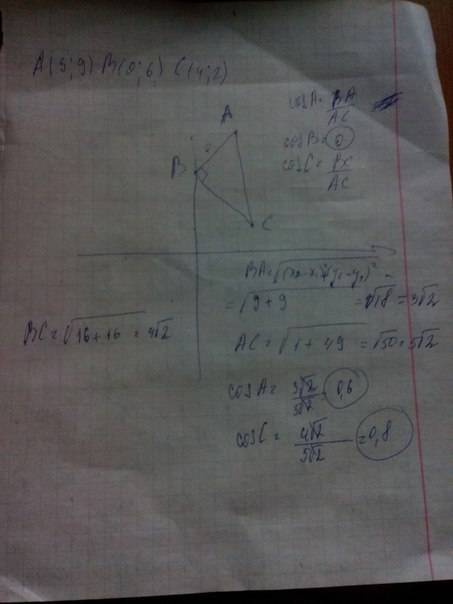 A(3;9) B(0;6) C(4;2)
A
B
C
cosA = BA/AC
cosB = 0
cosC = BC/AC
BA = √(x₂-x₁)²+(y₂-y₁)² =
= √9+9 = √18 = 3√2
BC = √16+16 = 4√2
AC = √1+49 = √50 = 5√2
cosA = 3√2/5√2 = 0,6
cosC = 4√2/5√2 = 0,8